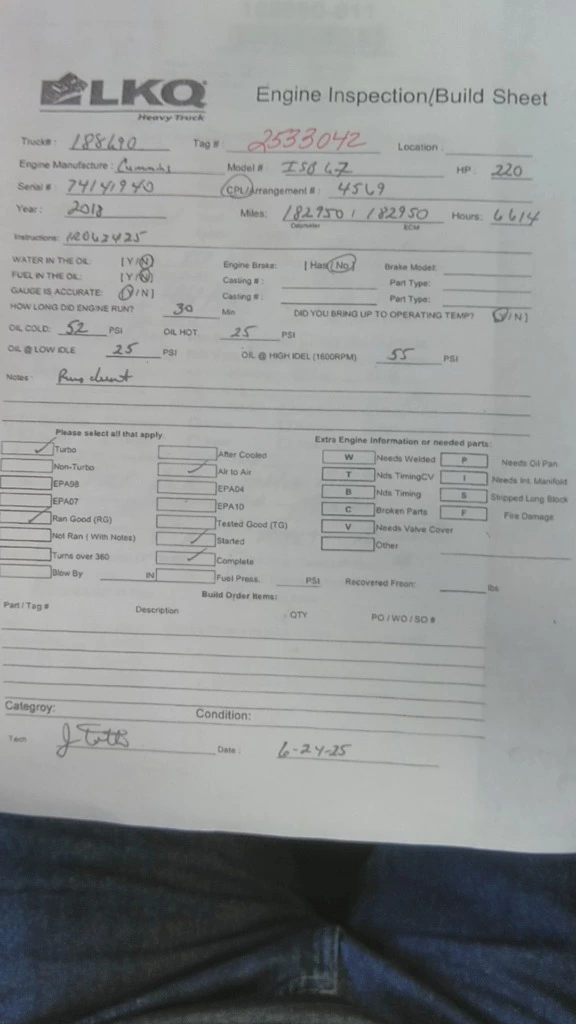 LKQ
Heavy Truck
Engine Inspection/Build Sheet
Truck#: 188690 Tag #: 2533042 Location:
Engine Manufacture: Cummins Model # ISB 6.7 HP 220
Serial #: 74141940 CPL/Arrangement #: 4569
Year: 2018 Miles: 182950 / 182950 Hours: 6614
Odometer ECM
Instructions:
WATER IN THE OIL: [Y/N] Engine Brake: [Has/No] Brake Model:
FUEL IN THE OIL: [Y/N] Casting #: Part Type:
GAUGE IS ACCURATE: [Y/N] Casting #: Part Type:
HOW LONG DID ENGINE RUN? 30 Min DID YOU BRING UP TO OPERATING TEMP? [Y/N]
OIL COLD: 52 PSI OIL HOT 25 PSI
OIL @ LOW IDLE 25 PSI OIL @ HIGH IDEL (1600RPM) 55 PSI
Notes:
Please select all that apply Extra Engine Information or needed parts:
Turbo After Cooled W Needs Welded P Needs Oil Pan
Non-Turbo Air to Air T Nds TimingCV I Needs Int. Manifold
EPA98 EPA04 B Nds Timing S Stripped Long Block
EPA07 EPA10 C Broken Parts F Fire Damage
Ran Good (RG) Tested Good (TG) V Needs Valve Cover
Not Ran ( With Notes) Started Other
Turns over 360 Complete
Blow By IN Fuel Press. PSI Recovered Freon: lbs
Build Order Items:
Part / Tag # Description QTY PO / WO / SO #
Categroy: Condition:
Tech Date: 6-24-25